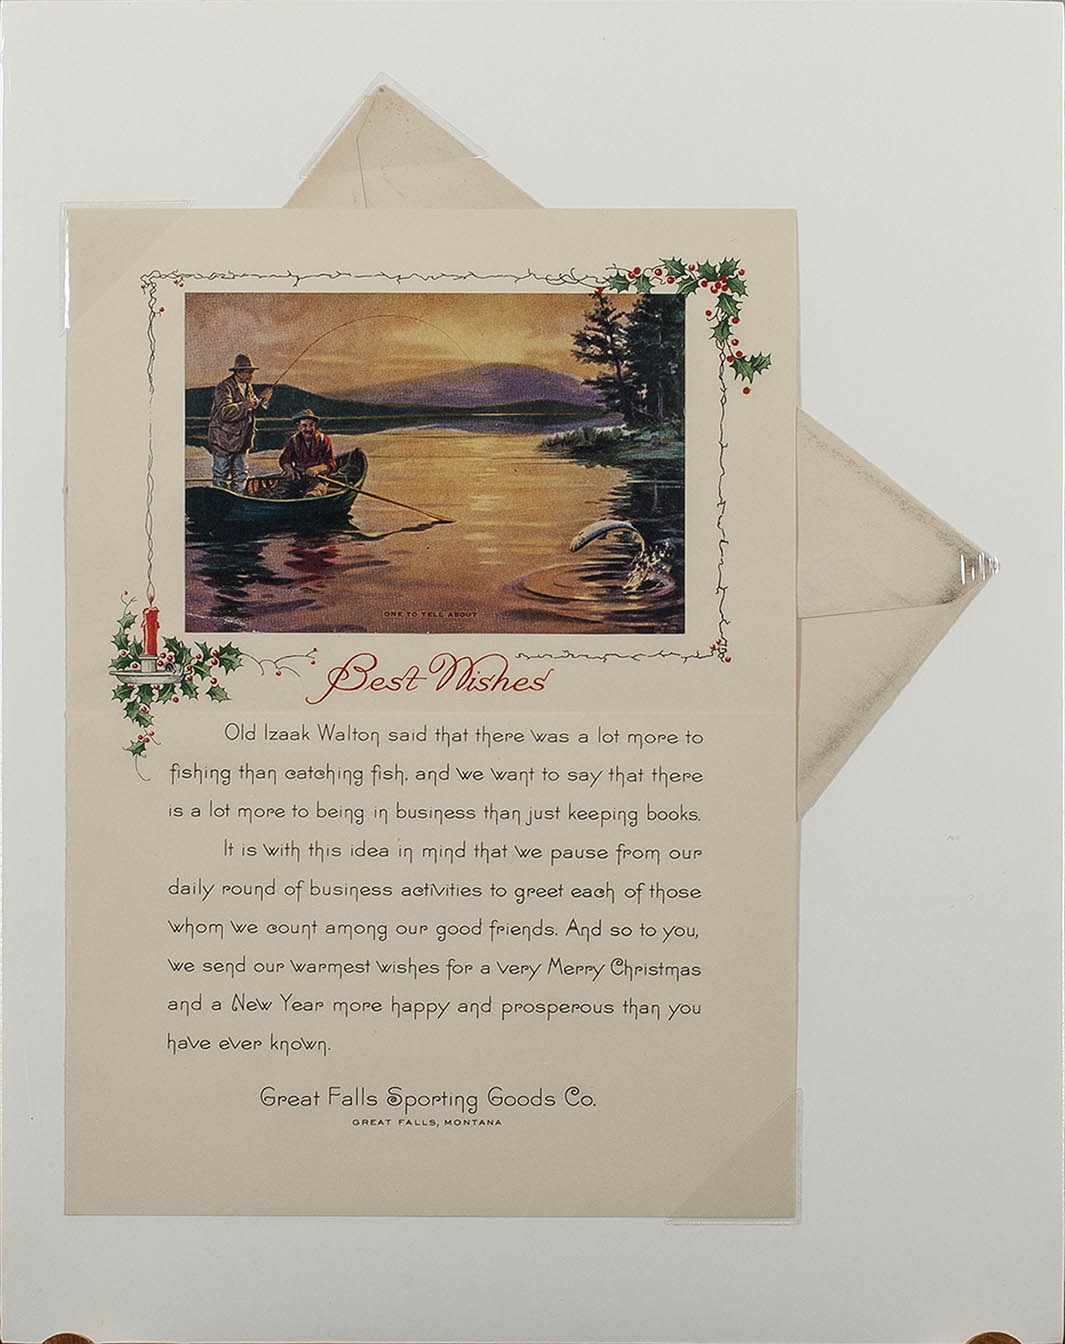 ONE TO TELL ABOUT
Best Wishes
Old Izaak Walton said that there was a lot more to
fishing than catching fish, and we want to say that there
is a lot more to being in business than just keeping books.
It is with this idea in mind that we pause from our
daily round of business activities to greet each of those
whom we count among our good friends. And so to you,
we send our warmest wishes for a very Merry Christmas
and a New Year more happy and prosperous than you
have ever known.
Great Falls Sporting Goods Co.
GREAT FALLS, MONTANA